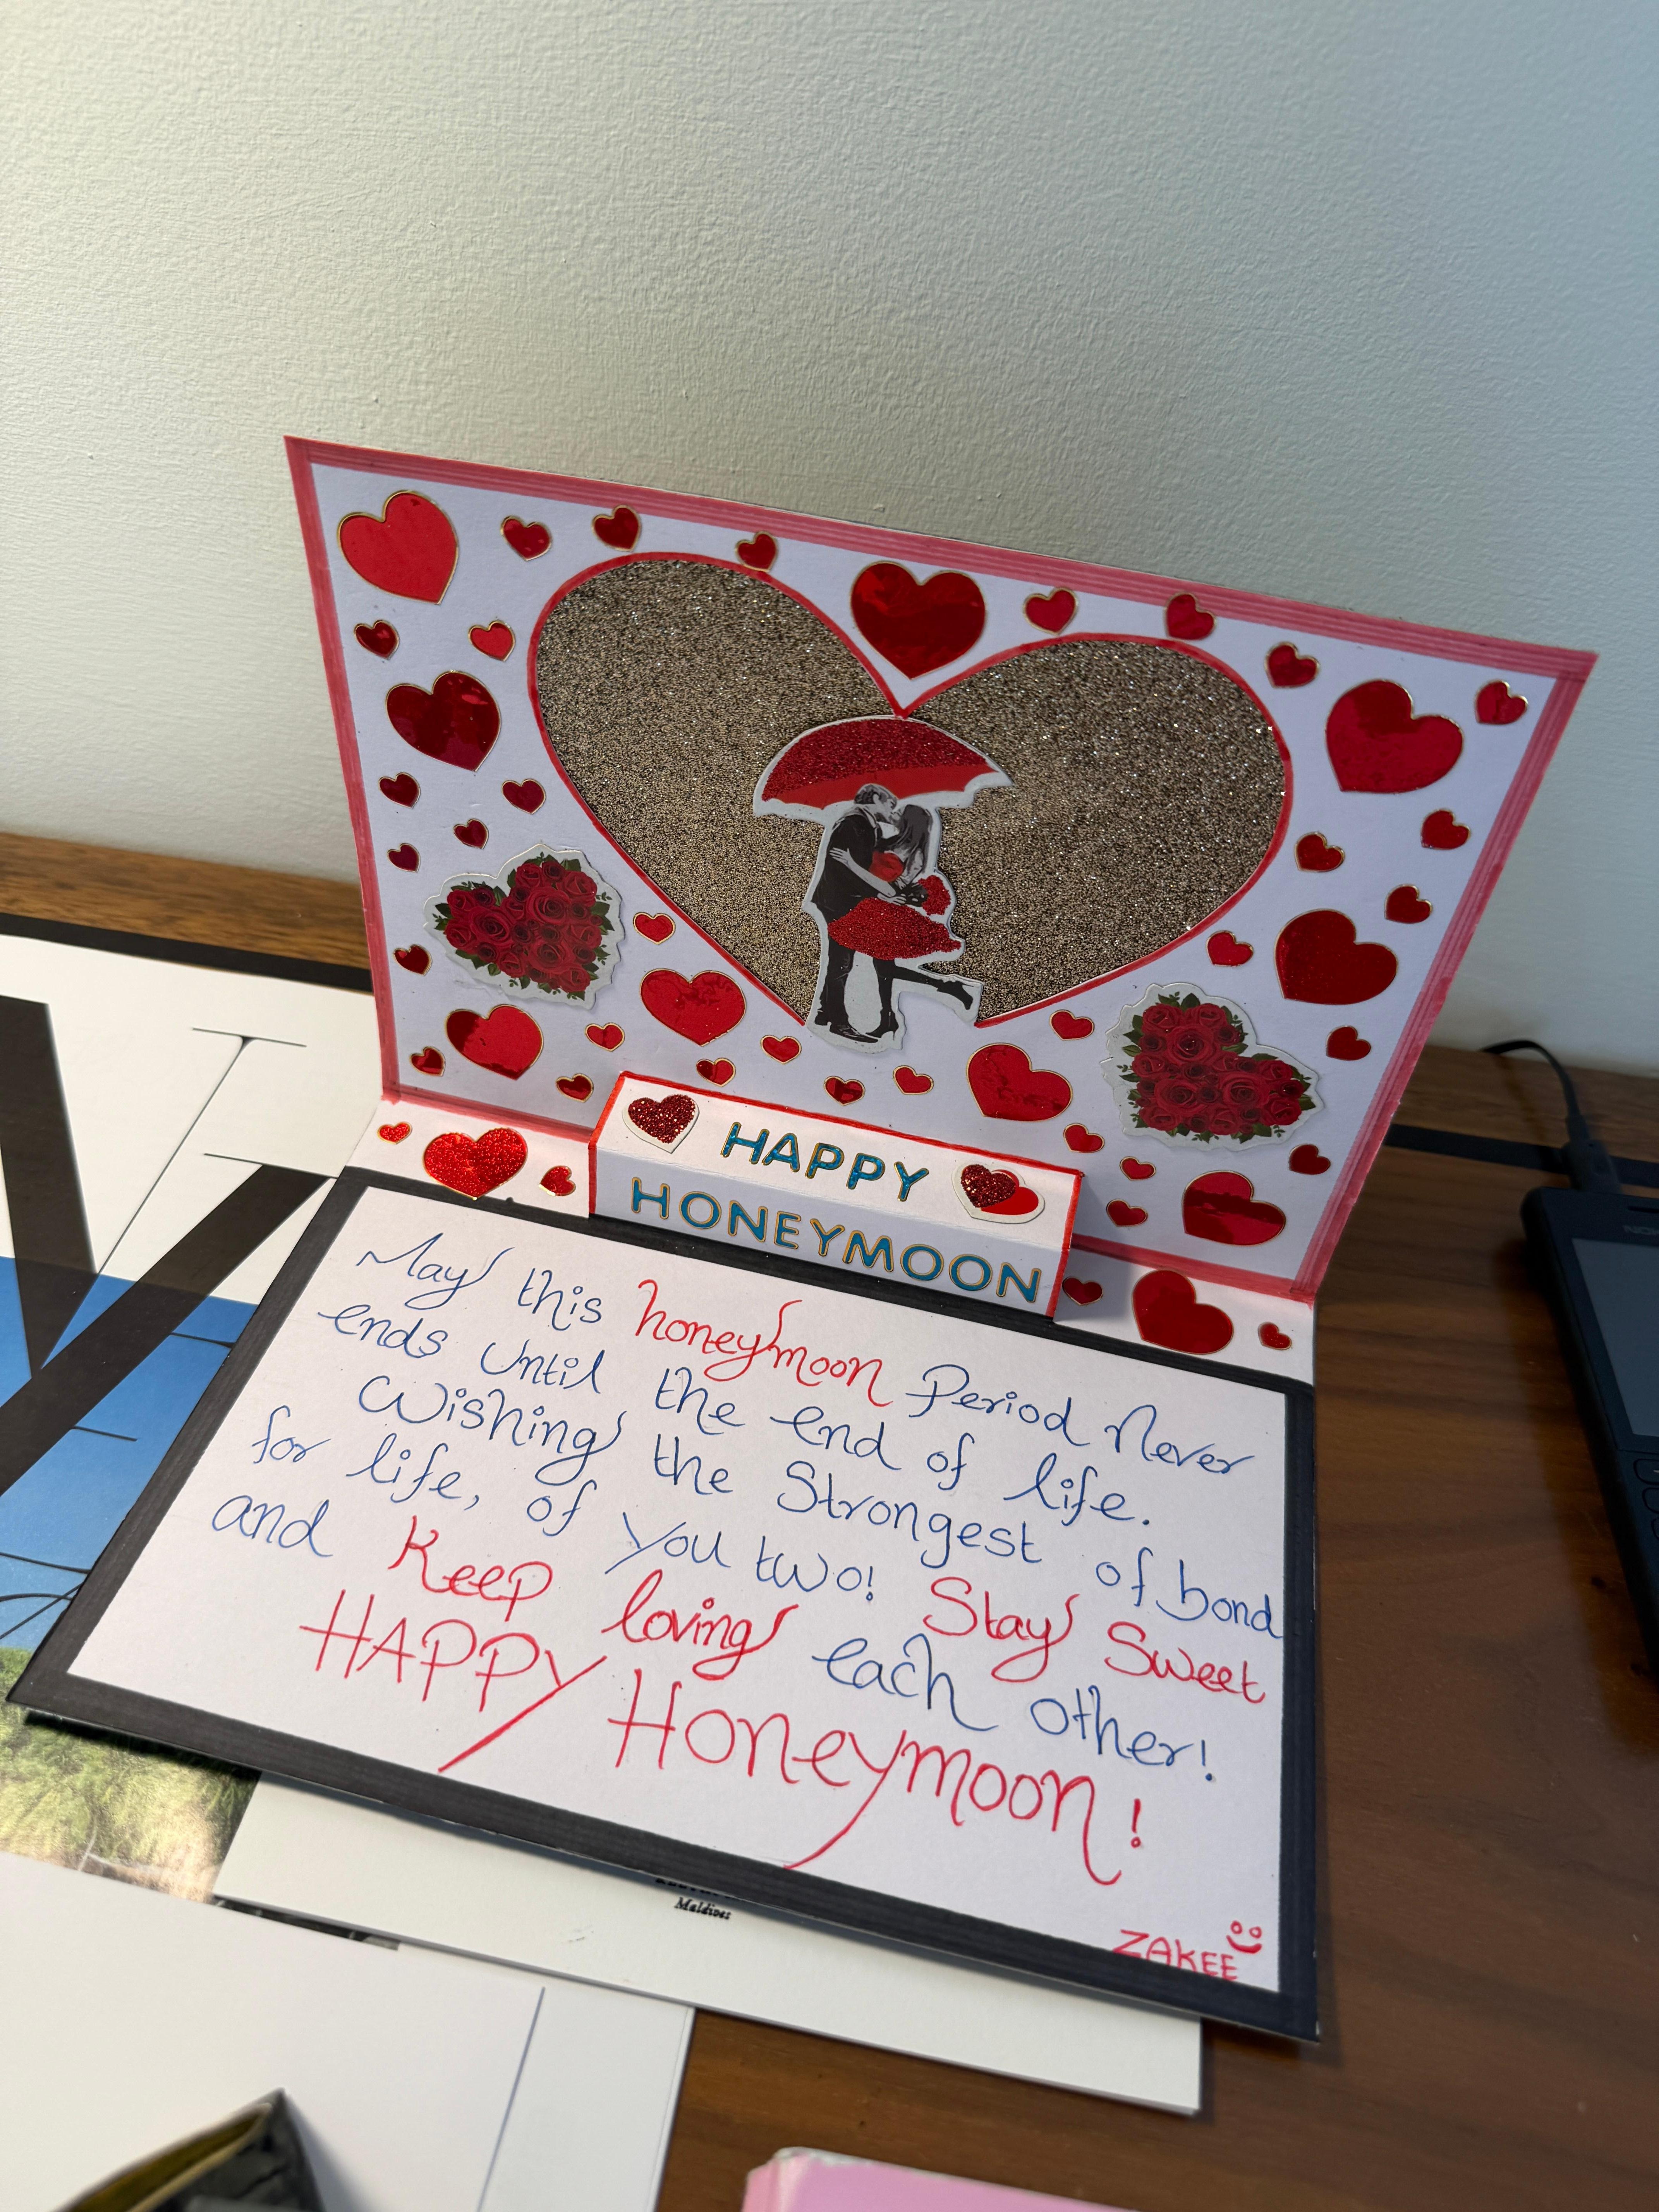 HAPPY
HONEYMOON
May this honeymoon Period Never
ends Until the end of life.
Wishing the Strongest of bond
for life, of you two! Stay Sweet
and Keep loving each other!
HAPPY Honeymoon!
ZAKEE
Maldives